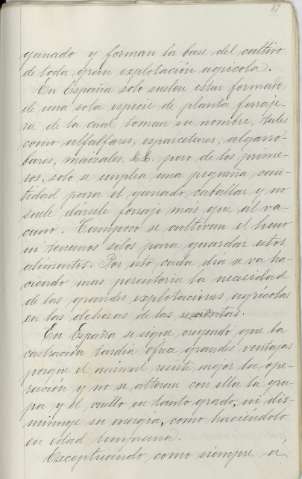 ganado y forman la base del cultivo
de toda gran explotación agrícola.
En España solo suelen estar formados
de una sola especie de planta forraje-
ra de la cual toman su nombre, tales
como alfalfares, esparcetares, algarro-
bares, maizales &&. pero de los prime-
ros, solo se emplea una pequeña can-
tidad para el ganado caballar y no
suele darsele forraje mas que al va-
cuno. Tampoco se cultivan el heno
ni renuevos solos para guardar estos
alimentos. Por esto cada dia se va ha-
ciendo mas perentoria la necesidad
de las grandes explotaciones agrícolas
en las dehesas de las
En España se sigue creyendo que la
castración tardia ofrece grandes ventajas
porque el animal resiste mejor la ope-
ración y no se alteran con ella la gru-
pa y el cuello en tanto grado, ni dis-
minuye su energia, como haciéndolo
en edad temprana.
Exceptuando como siempre a